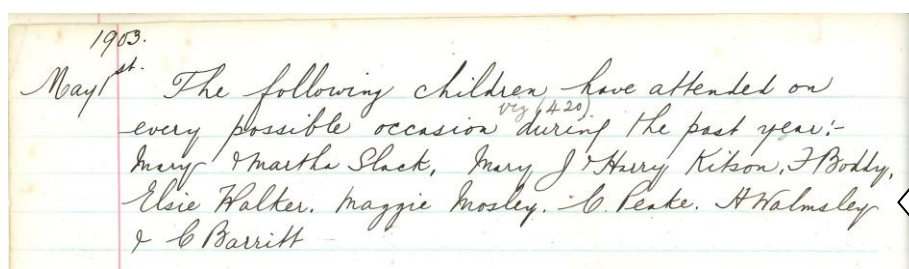 1903.
May 1st. The following children have attended on
viz (420)
every possible occasion during the past year:-
Mary & Martha Slack, Mary J & Harry Kitson, F Boddy,
Elsie Walker. Maggie Mosley. C. Peake. A Walmsley
& C Barritt